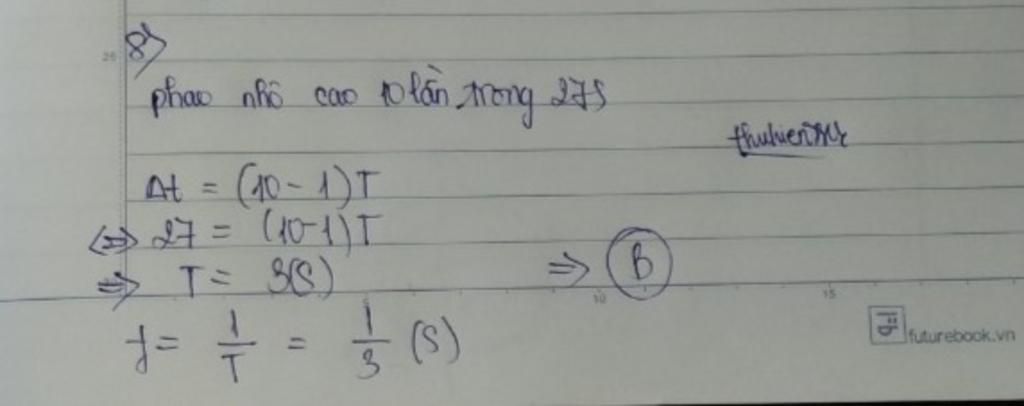 8)
phao nhô cao 10 lần trong 27s
thuhienxx
Δt = (10 - 1)T
<=> 27 = (10-1)T
=> T = 3(s) => B
f = 1/T = 1/3 (s)
25
5
10
15
futurebook.vn